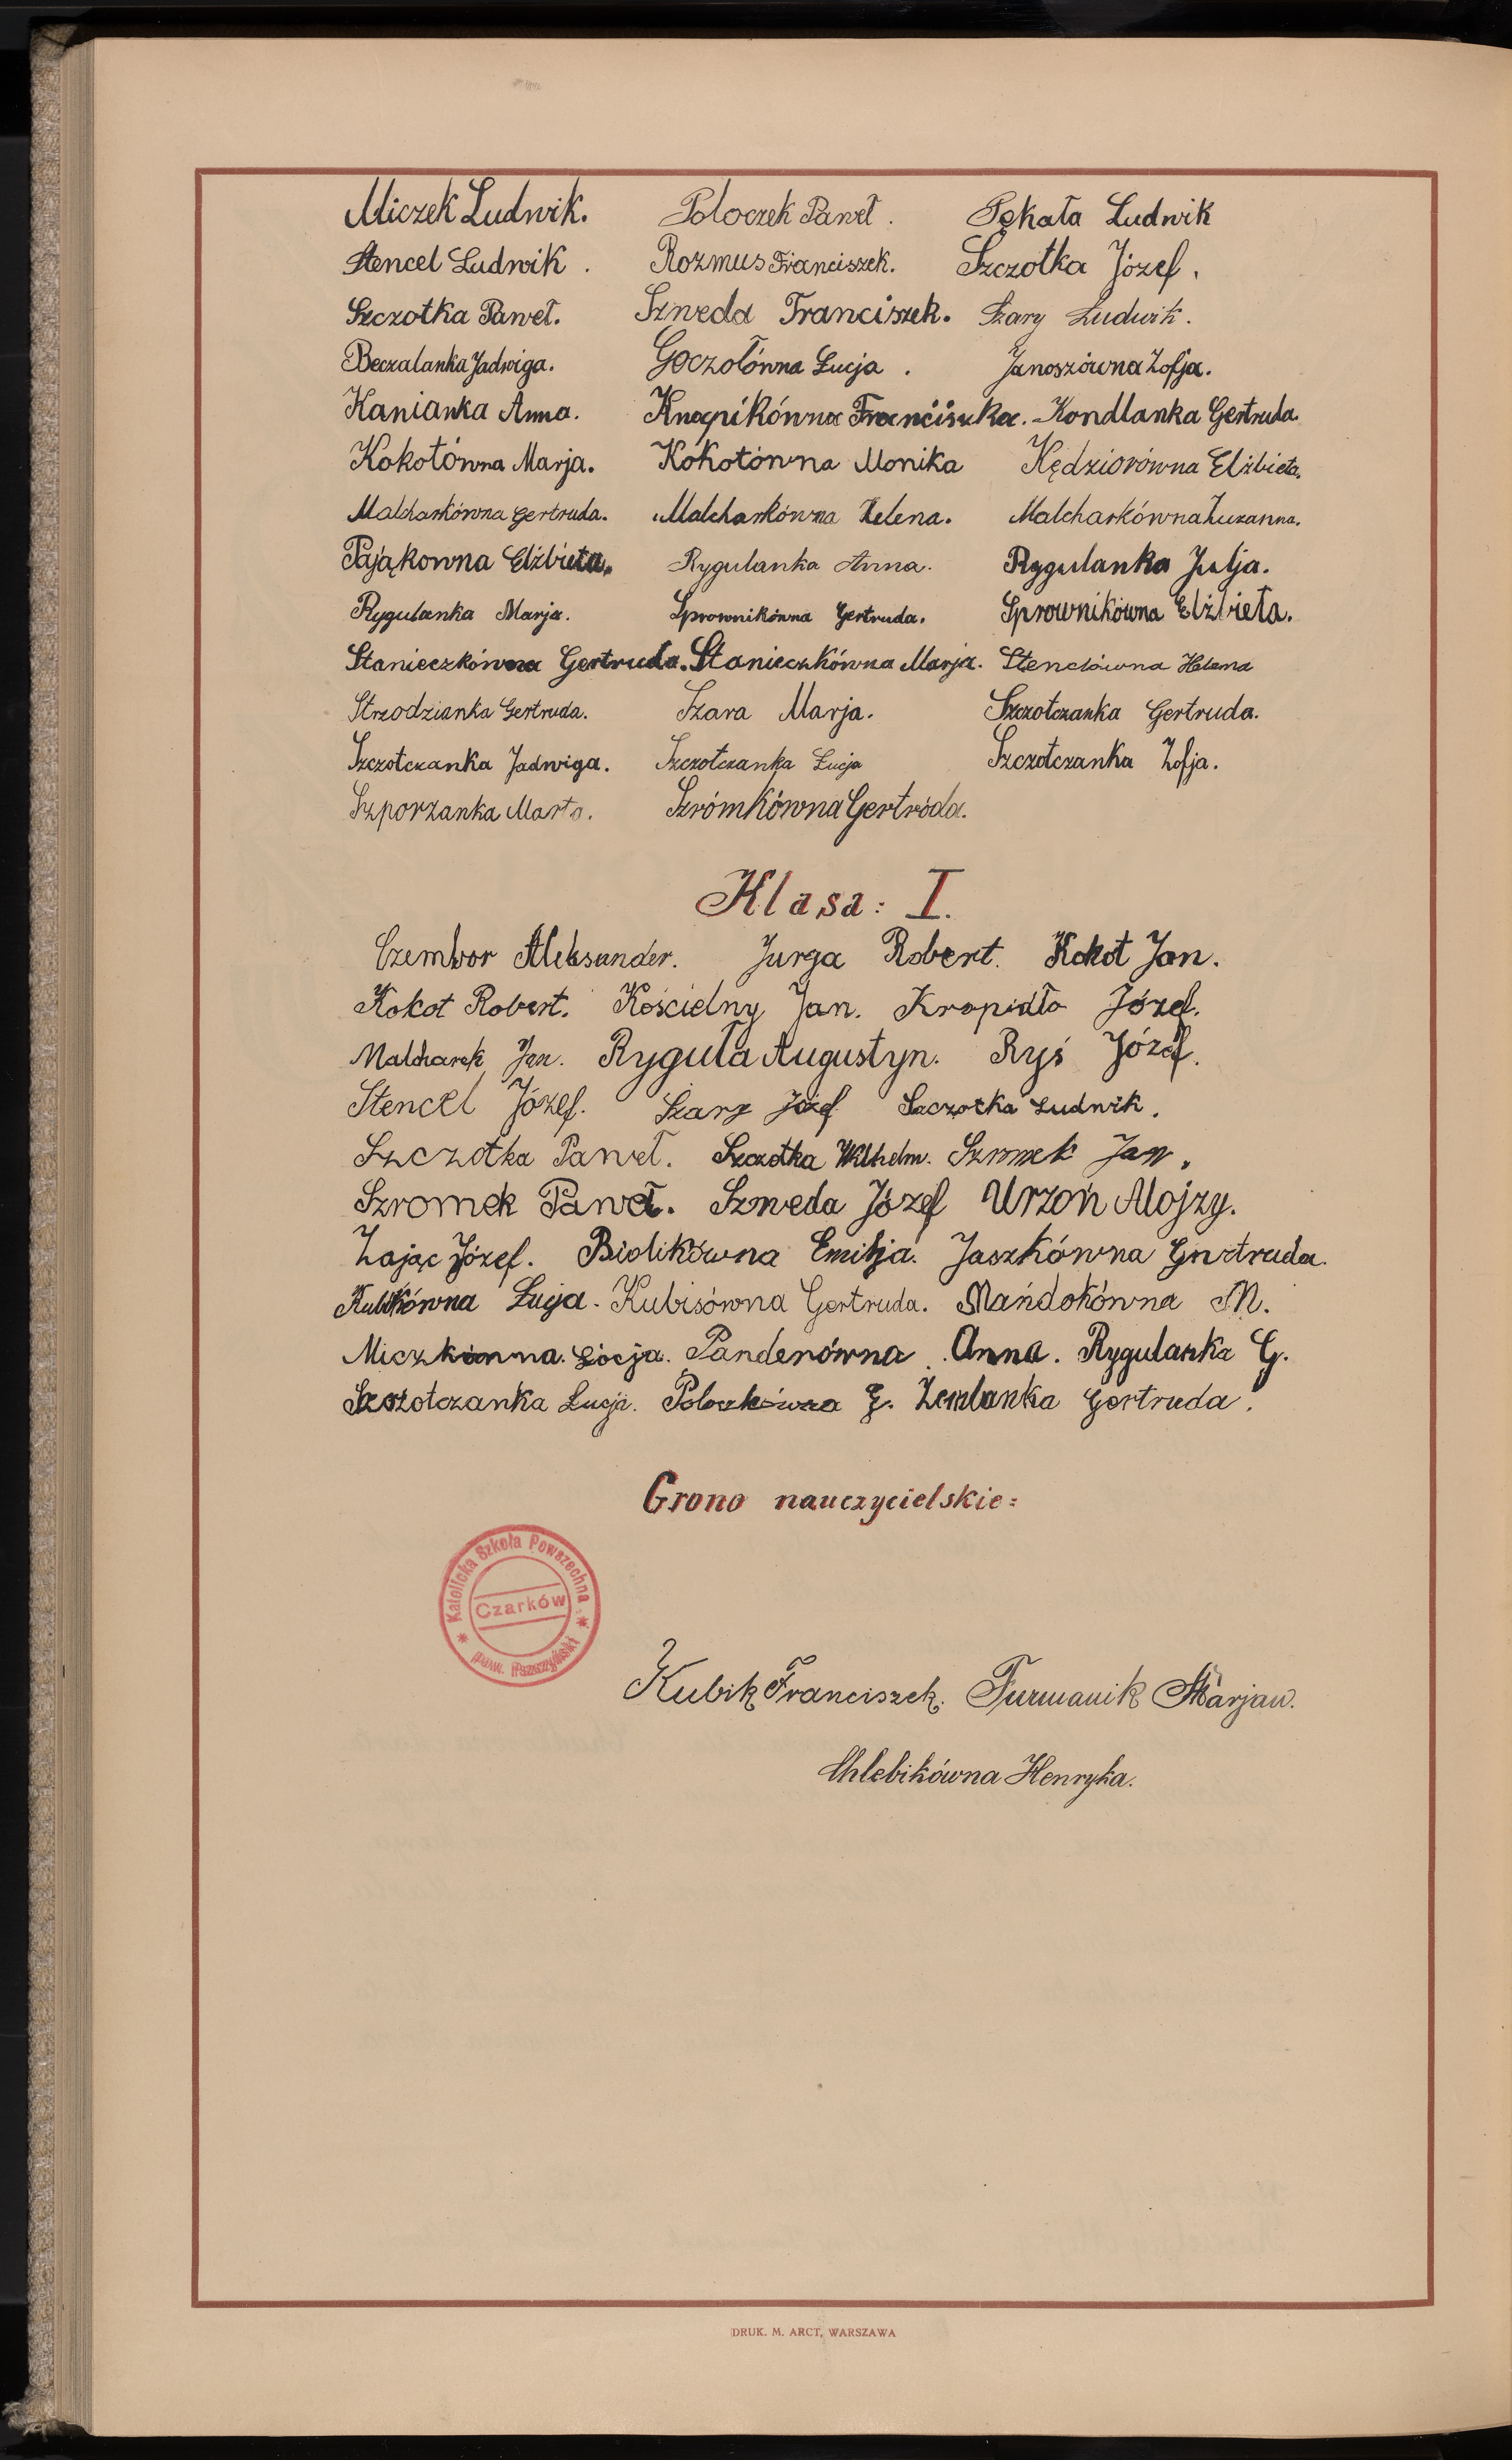 Miczek Ludwik. Poloczek Paweł. Pękała Ludwik
Stencel Ludwik. Rozmus Franciszek. Szczotka Józef.
Szczotka Paweł. Szweda Franciszek. Szary Ludwik.
Beczalanka Jadwiga. Goczołówna Łucja. Janoszówna Zofja.
Kanianka Anna. Knapikówna Franciszka. Kondlanka Gertruda.
Kokotówna Marja. Kokotówna Monika Kędziorówna Elżbieta.
Malcharkówna Gertruda. Malcharkówna Helena. Malcharkówna Zuzanna.
Pająkowna Elżbieta. Rygulanka Anna. Rygulanka Julja.
Rygulanka Marja. Sprownikówna Gertruda. Sprownikówna Elżbieta.
Stanieczkówna Gertruda. Stanieczkówna Marja. Stenclówna Helena
Strzodzianka Gertruda. Szara Marja. Szczotczanka Gertruda.
Szczotczanka Jadwiga. Szczotczanka Łucja Szczotczanka Zofja.
Szporzanka Marta. Szrómkówna Gertróda.
Klasa: I.
Czembor Aleksander. Jurga Robert. Kokot Jan.
Kokot Robert. Kościelny Jan. Kropidło Józef.
Malcharek Jan. Ryguła Augustyn. Ryś Józef.
Stencel Józef. Szary Józef Szczotka Ludwik.
Szczotka Paweł. Szczotka Wilhelm. Szromek Jan.
Szromek Paweł. Szweda Józef Urzoń Alojzy.
Zając Józef. Biolikówna Emilja. Jaszkówna Gertruda.
Kubikówna Łucja. Kubisówna Gertruda. Mańdokówna M.
Miczkówna Łócja. Panderówna Anna. Rygulanka G.
Szczotczanka Łucja. Poloczkówna G. Zemlanka Gertruda.
Grono nauczycielskie:
Katolicka Szkoła Powszechna
Czarków
pow. Pszczyński
Kubik Franciszek. Furmanik Marjan.
Chlebikówna Henryka.
DRUK. M. ARCT, WARSZAWA